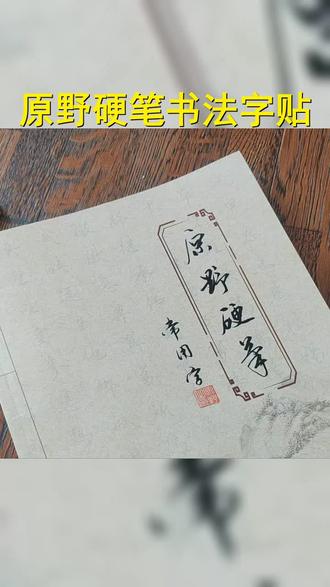 原野硬笔书法字贴
原野硬笔
常用字